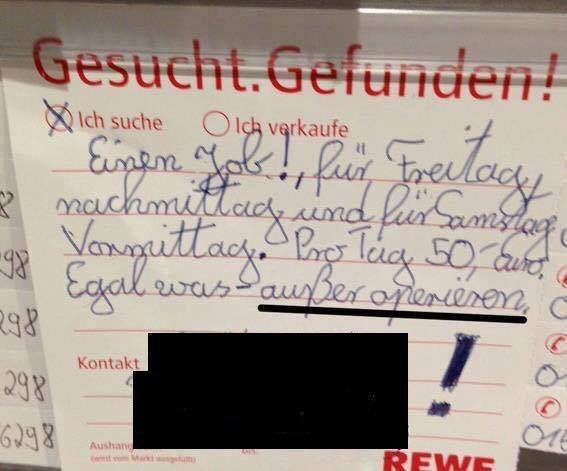 Gesucht. Gefunden!
Ich suche
Ich verkaufe
Einen Job!, für Freitag,
nachmittag und für Samstag
Vormittag. Pro Tag 50,- Euro.
Egal was - außer operieren.
!
Kontakt
Aushang
(wird vom Markt ausgefüllt)
bis:
REWE
8
98
298
298
6298